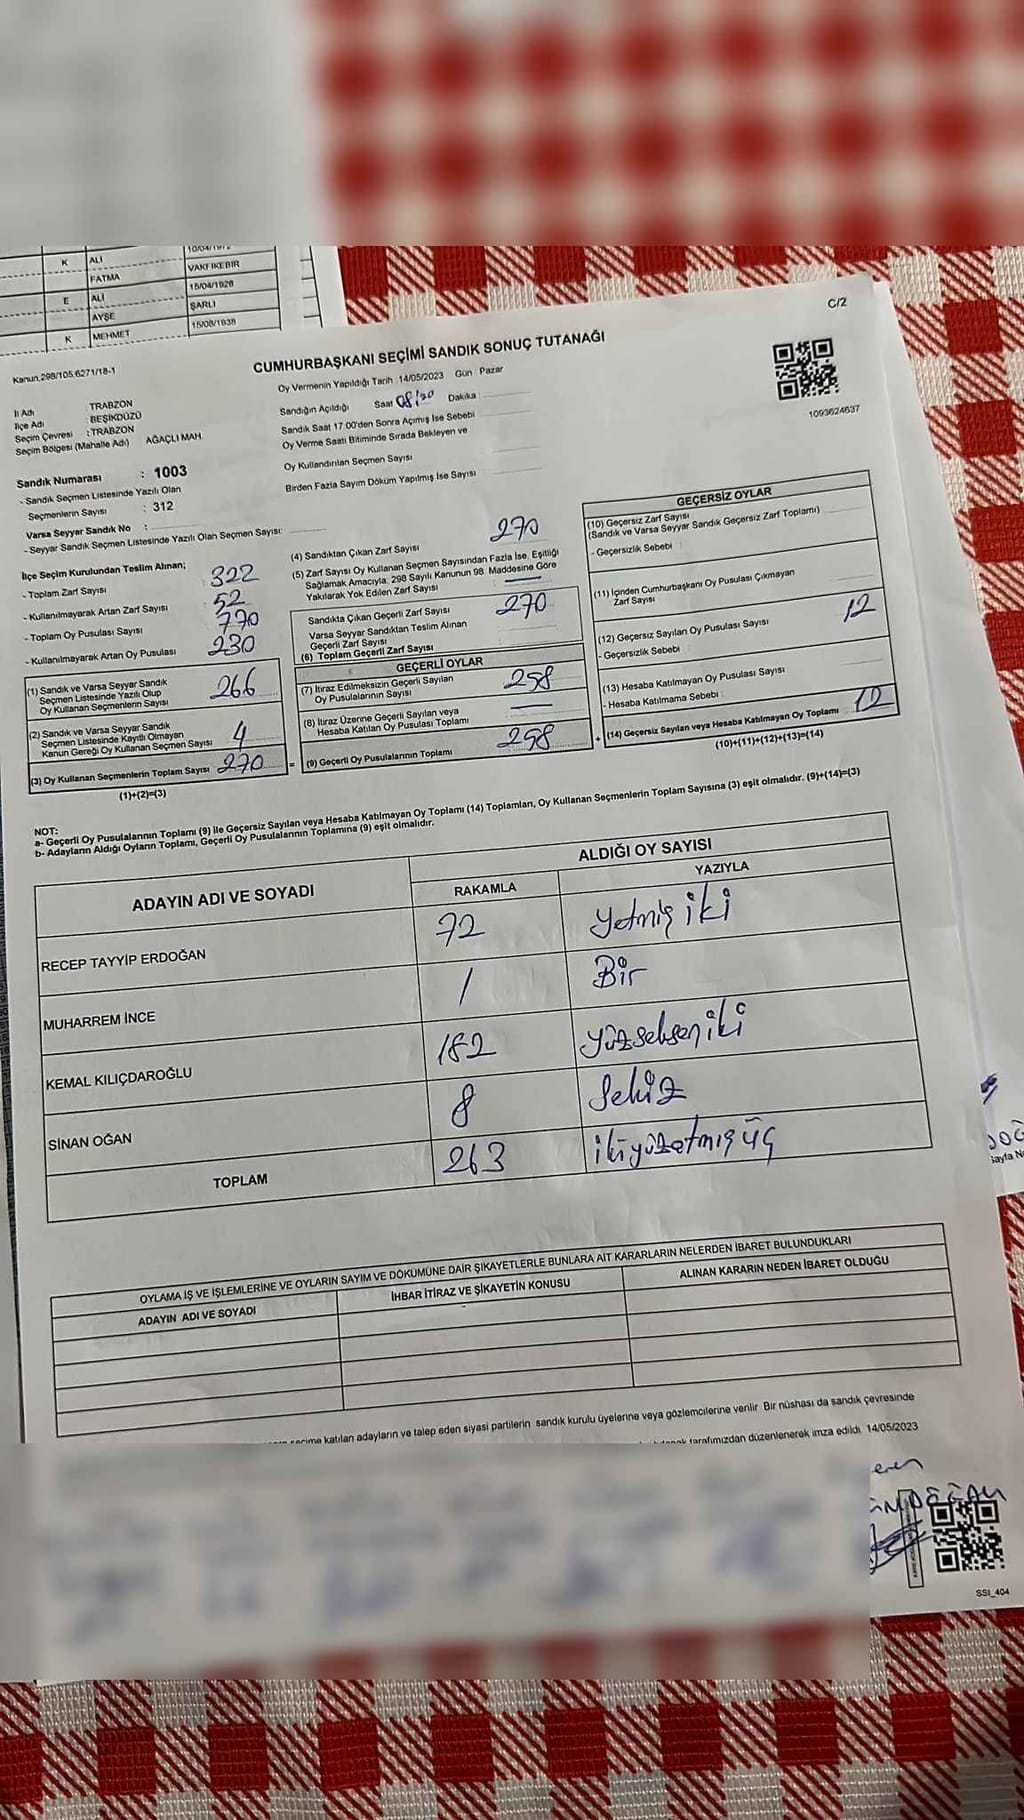 10/04/1972
K ALİ
FATMA VAKFIKEBİR
E ALİ 15/04/1926
AYŞE ŞARLI
K MEHMET 15/08/1938
C/2
Kanun.298/105,6271/18-1
CUMHURBAŞKANI SEÇİMİ SANDIK SONUÇ TUTANAĞI
Oy Vermenin Yapıldığı Tarih :14/05/2023 Gün : Pazar
1093624637
İl Adı : TRABZON
İlçe Adı : BEŞİKDÜZÜ
Seçim Çevresi : TRABZON
Seçim Bölgesi (Mahalle Adı) AĞAÇLI MAH.
Sandığın Açıldığı Saat 08:20 Dakika :
Sandık Saat 17:00'den Sonra Açımış İse Sebebi
Oy Verme Saati Bitiminde Sırada Bekleyen ve
Oy Kullandırılan Seçmen Sayısı
Birden Fazla Sayım Döküm Yapılmış İse Sayısı
Sandık Numarası : 1003
- Sandık Seçmen Listesinde Yazılı Olan
Seçmenlerin Sayısı : 312
Varsa Seyyar Sandık No :
- Seyyar Sandık Seçmen Listesinde Yazılı Olan Seçmen Sayısı:
İlçe Seçim Kurulundan Teslim Alınan;
- Toplam Zarf Sayısı : 322
- Kullanılmayarak Artan Zarf Sayısı : 52
- Toplam Oy Pusulası Sayısı : 770
- Kullanılmayarak Artan Oy Pusulası : 230
(1) Sandık ve Varsa Seyyar Sandık
Seçmen Listesinde Yazılı Olup
Oy Kullanan Seçmenlerin Sayısı 266
(2) Sandık ve Varsa Seyyar Sandık
Seçmen Listesinde Kayıtlı Olmayan
Kanun Gereği Oy Kullanan Seçmen Sayısı 4
(3) Oy Kullanan Seçmenlerin Toplam Sayısı 270
(1)+(2)=(3)
(4) Sandıktan Çıkan Zarf Sayısı 270
(5) Zarf Sayısı Oy Kullanan Seçmen Sayısından Fazla İse, Eşitliği
Sağlamak Amacıyla, 298 Sayılı Kanunun 98. Maddesine Göre
Yakılarak Yok Edilen Zarf Sayısı —
Sandıkta Çıkan Geçerli Zarf Sayısı 270
Varsa Seyyar Sandıktan Teslim Alınan
Geçerli Zarf Sayısı
(6) Toplam Geçerli Zarf Sayısı
GEÇERLİ OYLAR
(7) İtiraz Edilmeksizin Geçerli Sayılan
Oy Pusulalarının Sayısı 258
(8) İtiraz Üzerine Geçerli Sayılan veya
Hesaba Katılan Oy Pusulası Toplamı —
(9) Geçerli Oy Pusulalarının Toplamı 258
GEÇERSİZ OYLAR
(10) Geçersiz Zarf Sayısı
(Sandık ve Varsa Seyyar Sandık Geçersiz Zarf Toplamı)
- Geçersizlik Sebebi :
(11) İçinden Cumhurbaşkanı Oy Pusulası Çıkmayan
Zarf Sayısı
(12) Geçersiz Sayılan Oy Pusulası Sayısı 12
- Geçersizlik Sebebi
(13) Hesaba Katılmayan Oy Pusulası Sayısı
- Hesaba Katılmama Sebebi :
(14) Geçersiz Sayılan veya Hesaba Katılmayan Oy Toplamı 12
(10)+(11)+(12)+(13)=(14)
NOT:
a- Geçerli Oy Pusulalarının Toplamı (9) ile Geçersiz Sayılan veya Hesaba Katılmayan Oy Toplamı (14) Toplamları, Oy Kullanan Seçmenlerin Toplam Sayısına (3) eşit olmalıdır. (9)+(14)=(3)
b- Adayların Aldığı Oyların Toplamı, Geçerli Oy Pusulalarının Toplamına (9) eşit olmalıdır.
ADAYIN ADI VE SOYADI ALDIĞI OY SAYISI
RAKAMLA YAZIYLA
RECEP TAYYİP ERDOĞAN 72 Yetmiş iki
MUHARREM İNCE 1 Bir
KEMAL KILIÇDAROĞLU 182 Yüzseksen iki
SİNAN OĞAN 8 Sekiz
TOPLAM 263 ikiyüzetmiş üç
OYLAMA İŞ VE İŞLEMLERİNE VE OYLARIN SAYIM VE DÖKÜMÜNE DAİR ŞİKAYETLERLE BUNLARA AİT KARARLARIN NELERDEN İBARET BULUNDUKLARI
ADAYIN ADI VE SOYADI İHBAR İTİRAZ VE ŞİKAYETİN KONUSU ALINAN KARARIN NEDEN İBARET OLDUĞU
seçime katılan adayların ve talep eden siyasi partilerin sandık kurulu üyelerine veya gözlemcilerine verilir. Bir nüshası da sandık çevresinde
tarafımızdan düzenlenerek imza edildi. 14/05/2023
SSI_404